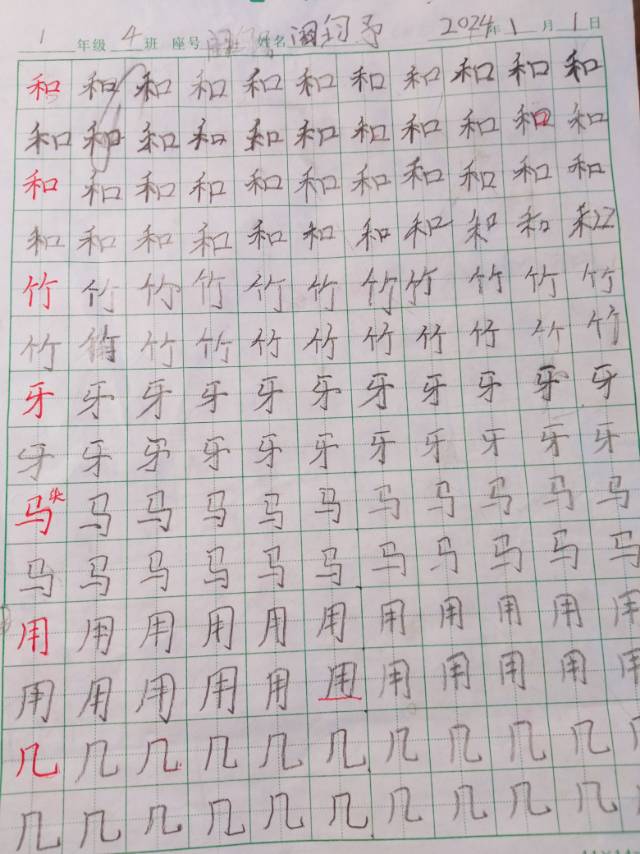 1 年级 4 班 座号 姓名 阚钧予 2024年 1 月 1 日
和 和 和 和 和 和 和 和 和 和 和
和 和 和 和 和 和 和 和 和 和 和
和 和 和 和 和 和 和 和 和 和 和
和 和 和 和 和 和 和 和 和 和
竹 竹 竹 竹 竹 竹 竹 竹 竹 竹 竹
竹 竹 竹 竹 竹 竹 竹 竹 竹 竹 竹
牙 牙 牙 牙 牙 牙 牙 牙 牙 牙 牙
牙 牙 牙 牙 牙 牙 牙 牙 牙 牙 牙
马 马 马 马 马 马 马 马 马 马 马
马 马 马 马 马 马 马 马 马 马 马
用 用 用 用 用 用 用 用 用 用 用
用 用 用 用 用 用 用 用 用 用 用
几 几 几 几 几 几 几 几 几 几 几
几 几 几 几 几 几 几 几 几 几 几